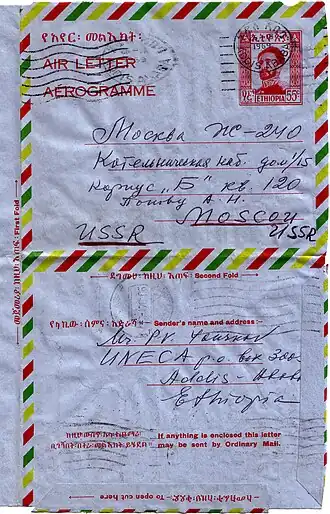 የአየር፡ መልእክት፡
AIR LETTER
AÉROGRAMME
ኢትዮጵያ
ETHIOPIA 55
Москва Ж-240
Котельническая наб. дом 1/15
Корпус „Б" кв. 120
Попову А. Н.
MOSCOW
USSR
USSR
First Fold
Second Fold
የላኪው፡ ስምና፡ አድራሻ
Sender's name and address:-
Mr. P.V.
UNECA p.o. Box
Addis-
Ethiopia
If anything is enclosed this letter
may be sent by Ordinary Mail.
To open cut here